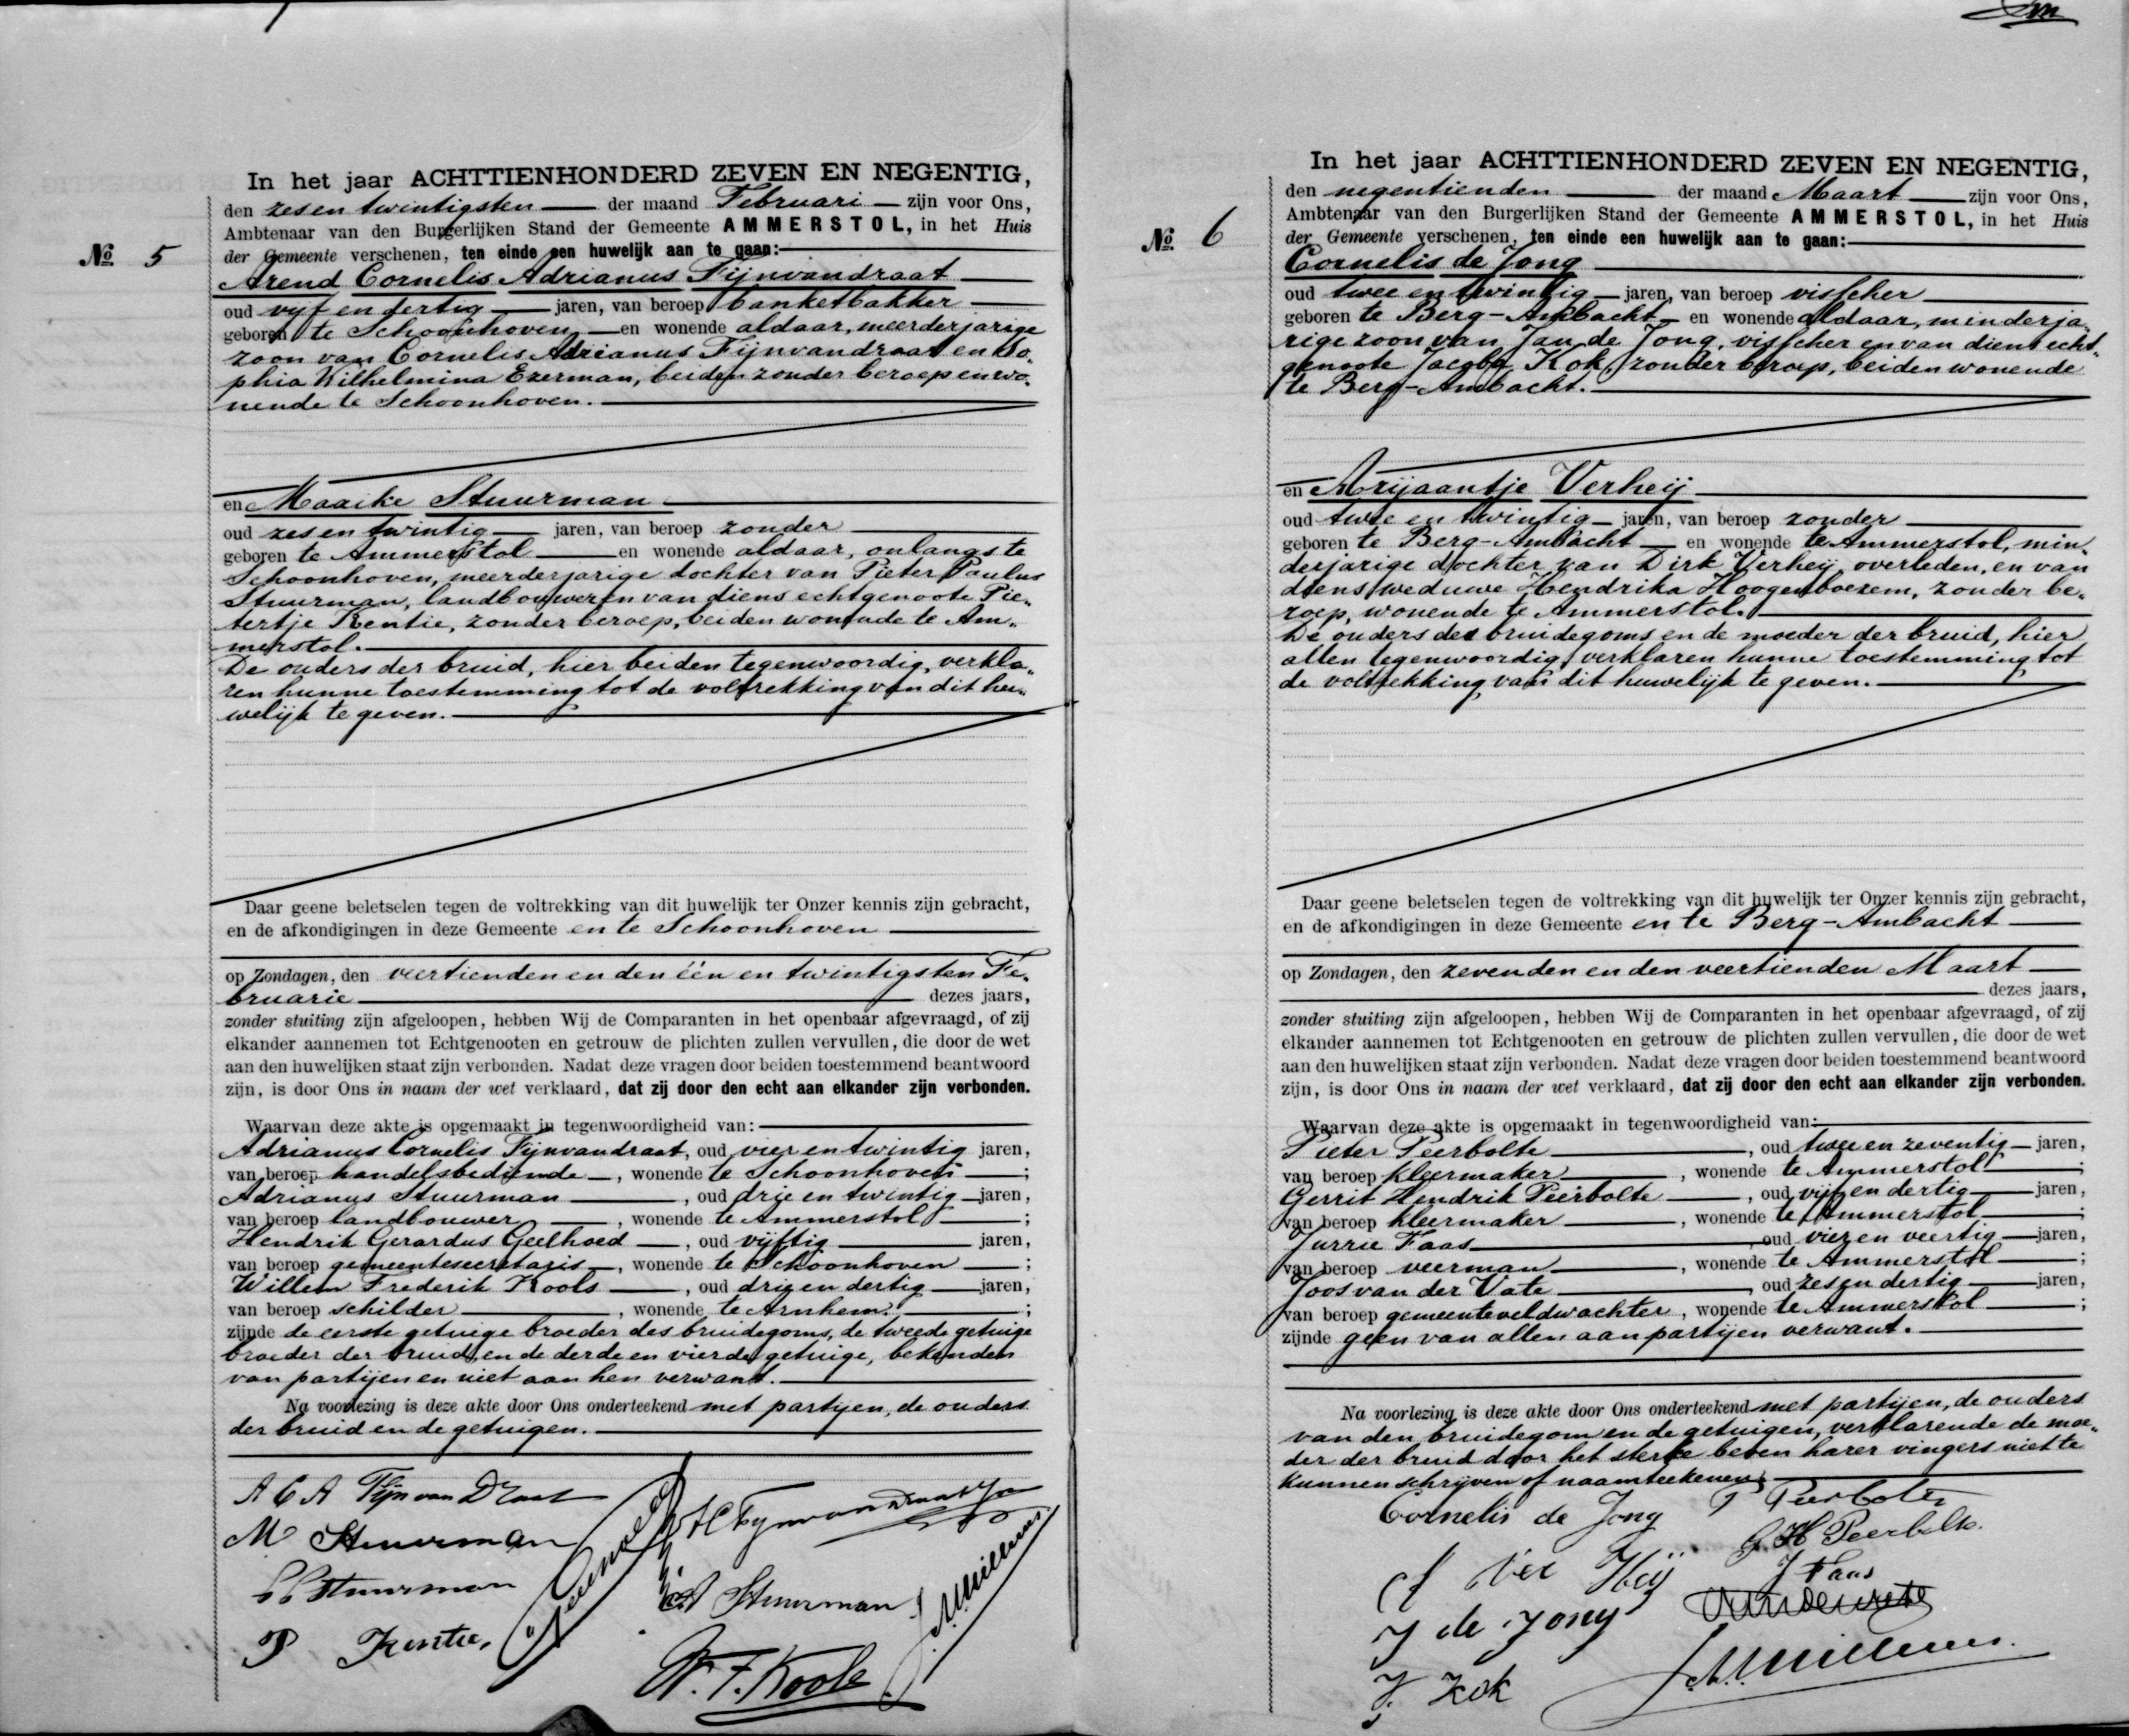 In het jaar ACHTTIENHONDERD ZEVEN EN NEGENTIG,
den zes en twintigsten der maand Februari zijn voor Ons,
Ambtenaar van den Burgerlijken Stand der Gemeente AMMERSTOL, in het Huis
der Gemeente verschenen, ten einde een huwelijk aan te gaan:
No 5
Arend Cornelis Adrianus Fijnvandraat
oud vijf en dertig jaren, van beroep banketbakker
geboren te Schoonhoven en wonende aldaar, meerderjarige
zoon van Cornelis Adrianus Fijnvandraat en So„
phia Wilhelmina Ezerman, beiden zonder beroep en wo„
nende te Schoonhoven.
en Maaike Stuurman
oud zes en twintig jaren, van beroep zonder
geboren te Ammerstol en wonende aldaar, onlangs te
Schoonhoven, meerderjarige dochter van Pieter Paulus
Stuurman, landbouwer en van diens echtgenoote Pie„
tertje Kentie, zonder beroep, beiden wonende te Am„
merstol.
De ouders der bruid, hier beiden tegenwoordig, verkla„
ren hunne toestemming tot de voltrekking van dit hu„
welijk te geven.
Daar geene beletselen tegen de voltrekking van dit huwelijk ter Onzer kennis zijn gebracht,
en de afkondigingen in deze Gemeente en te Schoonhoven
op Zondagen, den veertienden en den één en twintigsten Fe„
bruarie dezes jaars,
zonder stuiting zijn afgeloopen, hebben Wij de Comparanten in het openbaar afgevraagd, of zij
elkander aannemen tot Echtgenooten en getrouw de plichten zullen vervullen, die door de wet
aan den huwelijken staat zijn verbonden. Nadat deze vragen door beiden toestemmend beantwoord
zijn, is door Ons in naam der wet verklaard, dat zij door den echt aan elkander zijn verbonden.
Waarvan deze akte is opgemaakt in tegenwoordigheid van:
Adrianus Cornelis Fijnvandraat, oud vier en twintig jaren,
van beroep handelsbediende, wonende te Schoonhoven;
Adrianus Stuurman, oud drie en twintig jaren,
van beroep landbouwer, wonende te Ammerstol;
Hendrik Gerardus Geelhoed, oud vijftig jaren,
van beroep gemeentesecretaris, wonende te Schoonhoven;
Willem Frederik Kools, oud drie en dertig jaren,
van beroep schilder, wonende te Arnhem;
zijnde de eerste getuige broeder des bruidegoms, de tweede getuige
broeder der bruid, en de derde en vierde getuige, bekenden
van partijen en niet aan hen verwant.
Na voorlezing is deze akte door Ons onderteekend met partijen, de ouders
der bruid en de getuigen.
A C A Fijn van Draat
M Stuurman
P P Stuurman
P Kentie,
A C Fijnvandraat Jr
A Stuurman
W. F. Kools
In het jaar ACHTTIENHONDERD ZEVEN EN NEGENTIG,
den negentienden der maand Maart zijn voor Ons,
Ambtenaar van den Burgerlijken Stand der Gemeente AMMERSTOL, in het Huis
der Gemeente verschenen, ten einde een huwelijk aan te gaan:
No 6
Cornelis de Jong
oud twee en twintig jaren, van beroep visscher
geboren te Berg-Ambacht en wonende aldaar, minderja„
rige zoon van Jan de Jong, visscher en van diens echt„
genoote Jacoba Kok, zonder beroep, beiden wonende
te Berg-Ambacht.
en Arijaantje Verheij
oud twee en twintig jaren, van beroep zonder
geboren te Berg-Ambacht en wonende te Ammerstol, min„
derjarige dochter van Dirk Verheij, overleden, en van
diens weduwe Hendrika Hoogenboezem, zonder be„
roep, wonende te Ammerstol.
De ouders des bruidegoms en de moeder der bruid, hier
allen tegenwoordig, verklaren hunne toestemming tot
de voltrekking van dit huwelijk te geven.
Daar geene beletselen tegen de voltrekking van dit huwelijk ter Onzer kennis zijn gebracht,
en de afkondigingen in deze Gemeente en te Berg-Ambacht
op Zondagen, den zevenden en den veertienden Maart
dezes jaars,
zonder stuiting zijn afgeloopen, hebben Wij de Comparanten in het openbaar afgevraagd, of zij
elkander aannemen tot Echtgenooten en getrouw de plichten zullen vervullen, die door de wet
aan den huwelijken staat zijn verbonden. Nadat deze vragen door beiden toestemmend beantwoord
zijn, is door Ons in naam der wet verklaard, dat zij door den echt aan elkander zijn verbonden.
Waarvan deze akte is opgemaakt in tegenwoordigheid van:
Pieter Peerbolte, oud twee en zeventig jaren,
van beroep kleermaker, wonende te Ammerstol;
Gerrit Hendrik Peerbolte, oud vijf en dertig jaren,
van beroep kleermaker, wonende te Ammerstol;
Jurrie Faas, oud vier en veertig jaren,
van beroep veerman, wonende te Ammerstol;
Joos van der Vate, oud zes en dertig jaren,
van beroep gemeenteveldwachter, wonende te Ammerstol;
zijnde geen van allen aan partijen verwant.
Na voorlezing is deze akte door Ons onderteekend met partijen, de ouders
van den bruidegom en de getuigen, verklarende de moe„
der der bruid door het sterke beven harer vingers niet te
kunnen schrijven of naamteekenen.
Cornelis de Jong
P Peerbolte
G H Peerbolte.
A Ver Heij
J Faas
J de Jong
J. Kok